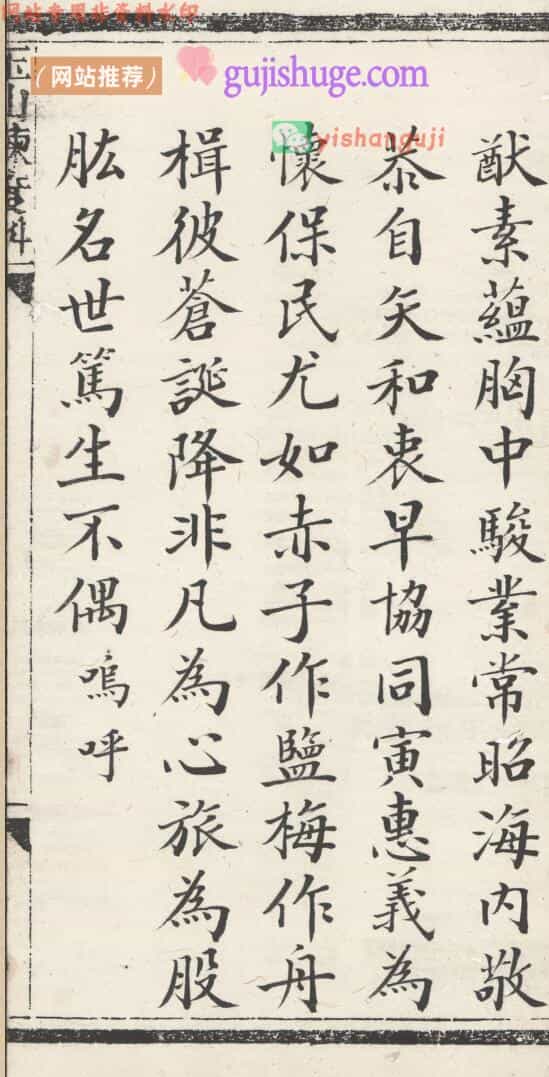 网站专用非资料水印
(网站推荐)
gujishuge.com
yishanguji
猷素蘊胸中駿業常昭海内敬
恭自矢和衷早協同寅惠義為
懷保民尤如赤子作鹽梅作舟
楫彼蒼誕降非凡為心旅為股
肱名世篤生不偶嗚呼
玉山煉度科